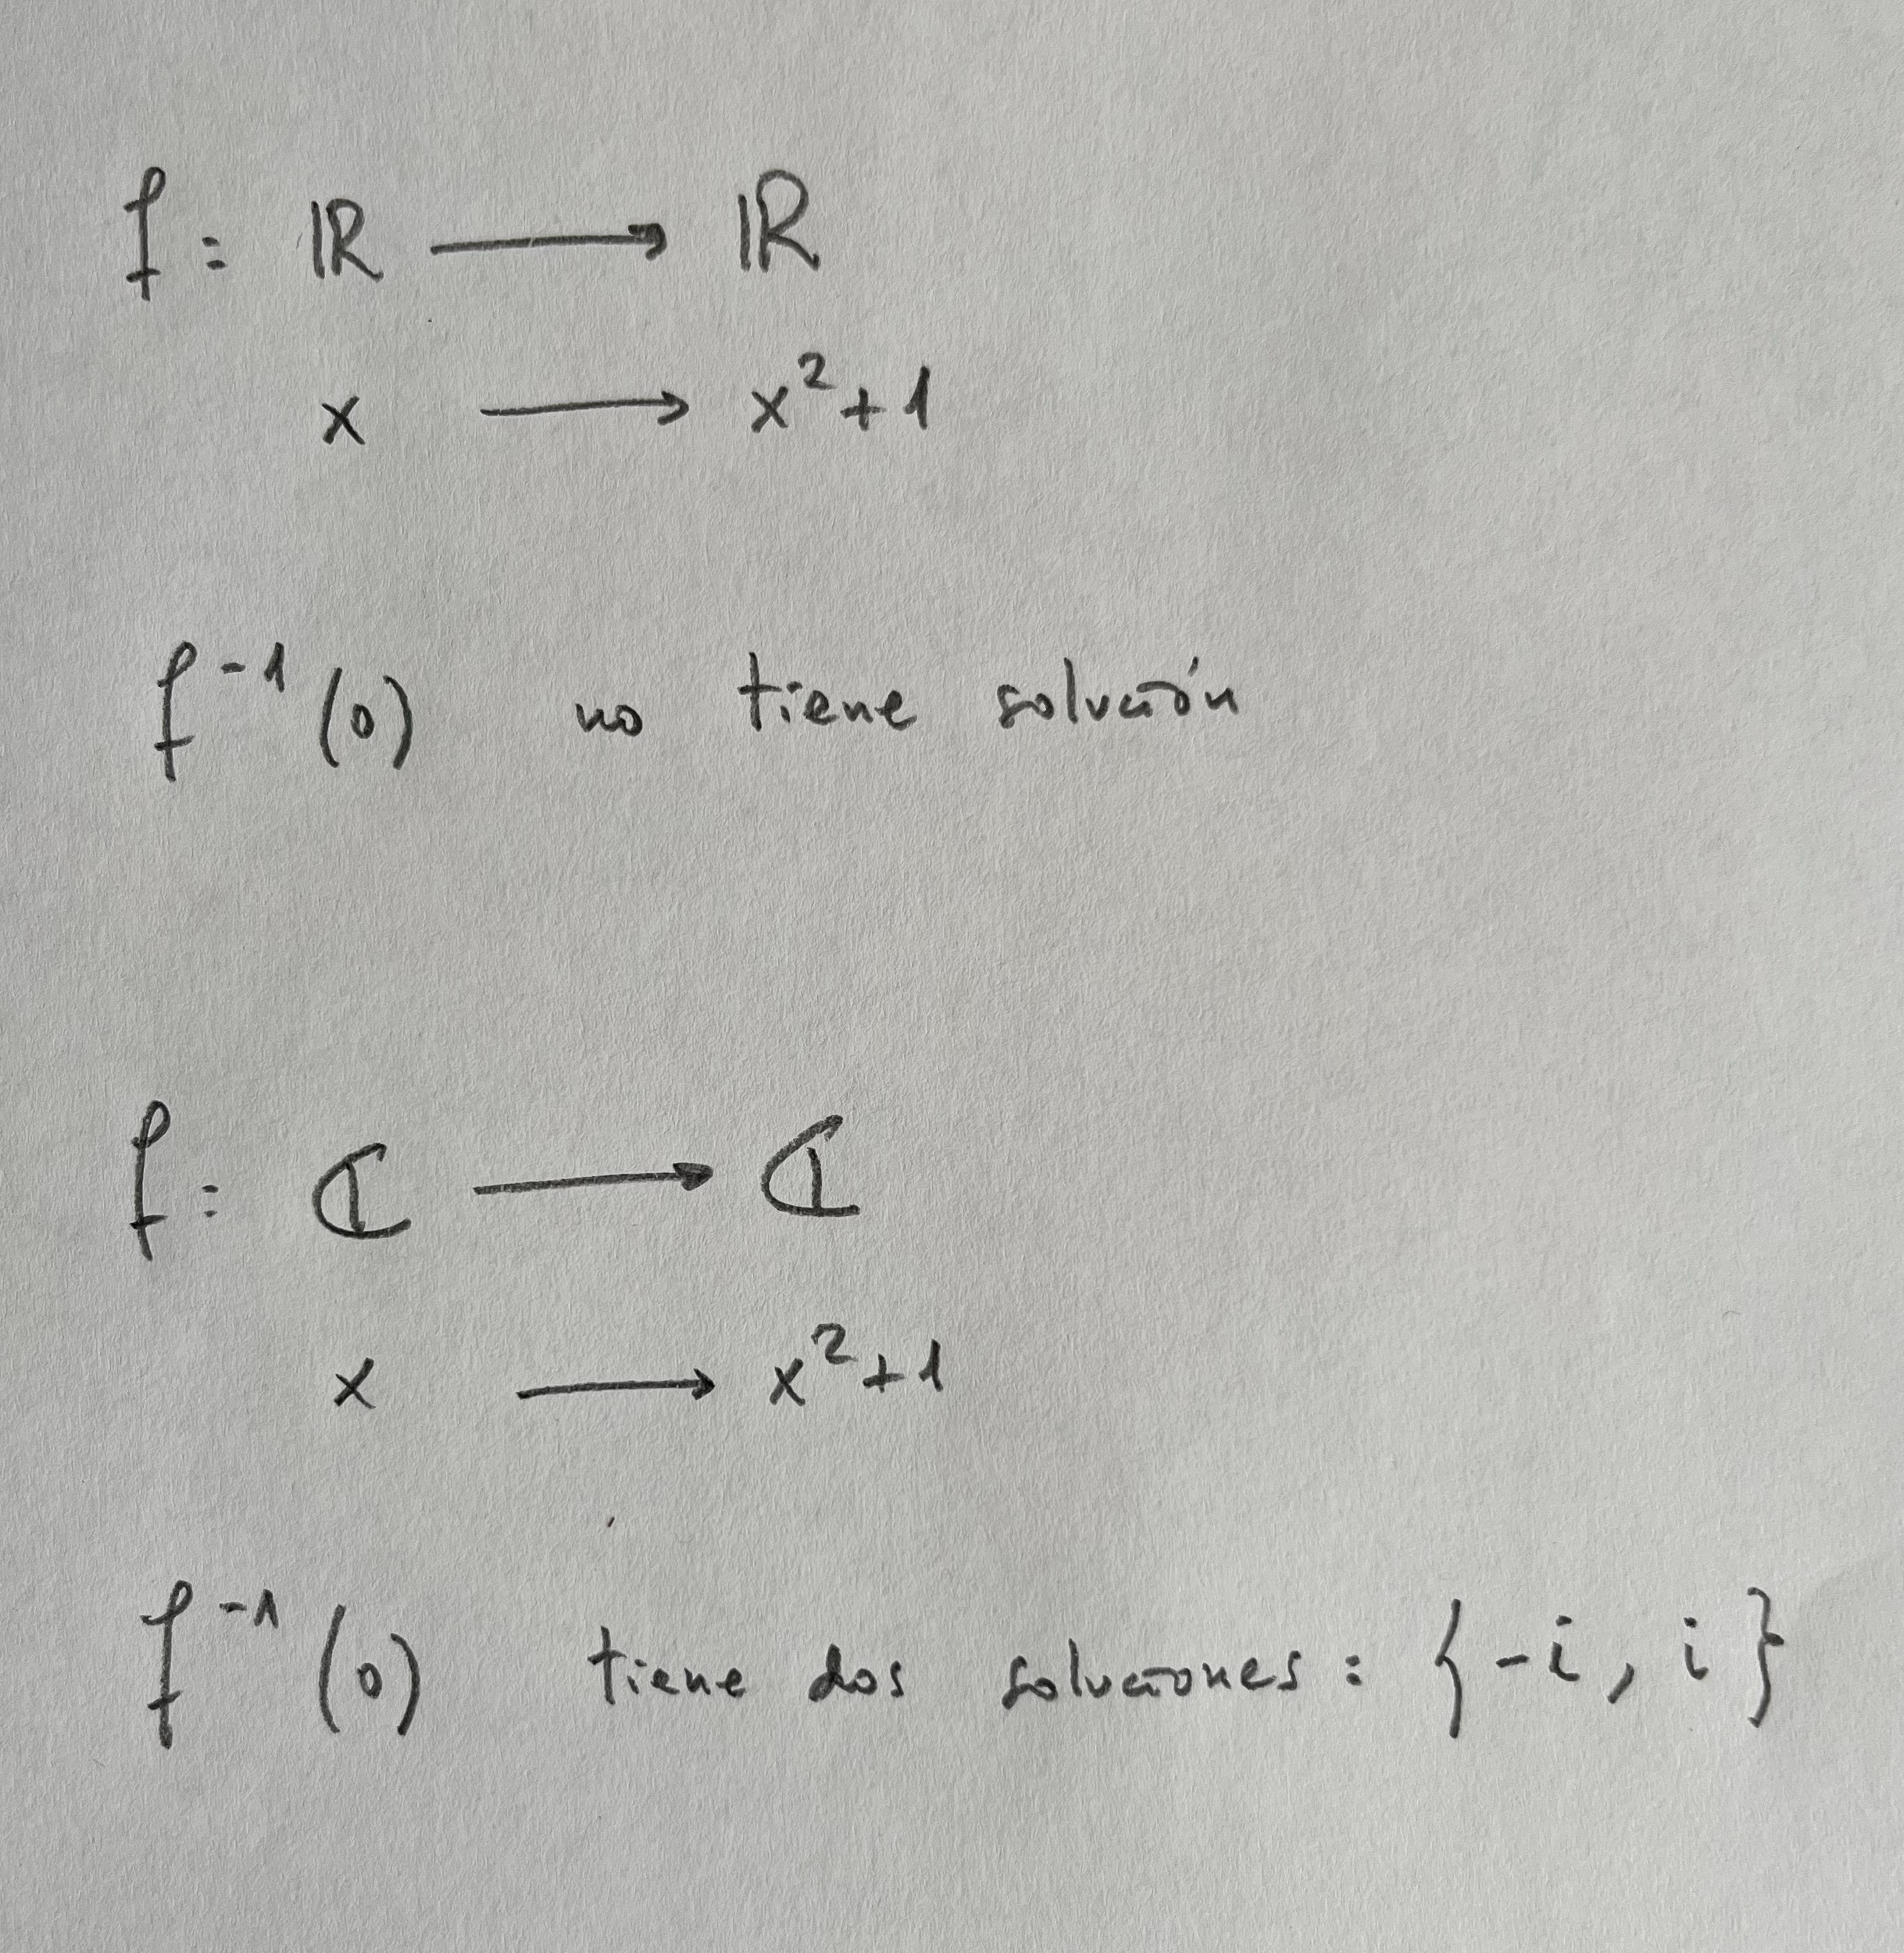 f: ℝ ⟶ ℝ
x ⟶ x²+1
f⁻¹(0) no tiene solución
f: ℂ ⟶ ℂ
x ⟶ x²+1
f⁻¹(0) tiene dos soluciones: {-i, i}